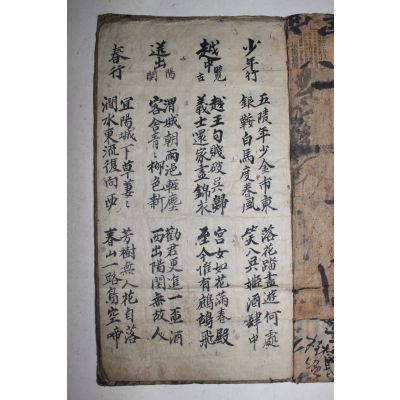 少年行
五陵年少金市東 落花踏盡遊何處
銀鞍白馬度春風 笑入吳姬酒肆中
越中覽古
越王句賤破吳歸 宮女如花滿春殿
義士還家盡錦衣 至今惟有鷓鴣飛
送出陽關
渭城朝雨浥輕塵 勸君更進一盃酒
客舍青柳色新 西出陽關無故人
春行
宜陽城下草萋〻 芳樹無人花自落
澗水東流復向西 春山一路鳥空啼